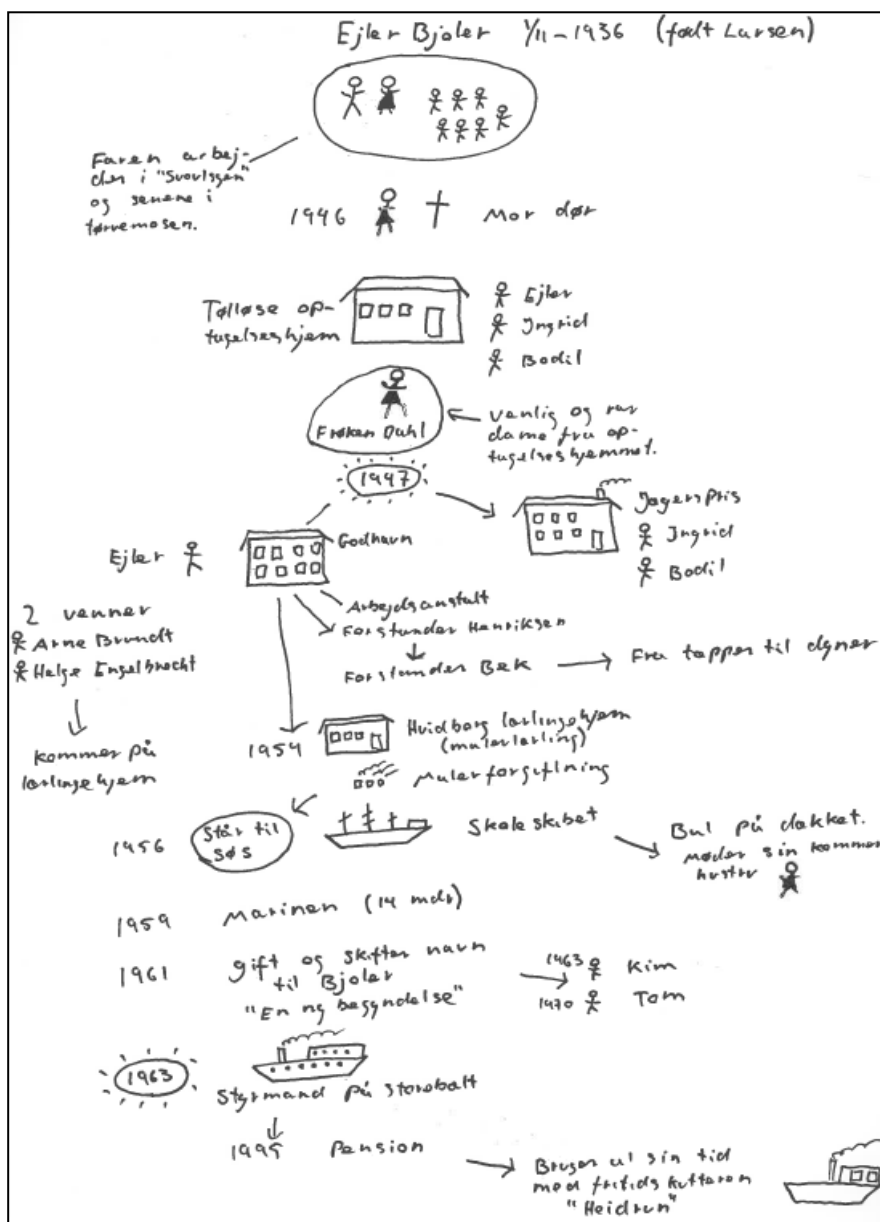 Ejler Bjoler 1/11-1936 (født Larsen)
Faren arbej-
der i "Svovlsyren"
og senere i
tørvemosen.
1946
Mor dør
Tølløse op-
tagelseshjem
Ejler
Ingrid
Bodil
Frøken Dahl
venlig og rar
dame fra op-
tagelseshjemmet.
1947
Jægerspris
Ingrid
Bodil
Ejler
Godhavn
2 venner
Arne Brundt
Helge Engelbrecht
kommer på
lærlingehjem
Arbejdsanstalt
Forstander Henriksen
Forstander Bek
Fra tæpper til dyner
1954
Hvidborg lærlingehjem
(malerlærling)
Malerforgiftning
1956
Står til
søs
Skoleskibet
Bal på dækket.
møder sin kommen
hustru
1959 Marinen (14 mdr)
1961 gift og skifter navn
til Bjoler
"En ny begyndelse"
1963 Kim
1970 Tom
1963
Styrmand på storebælt
1995 Pension
Bruger al sin tid
med fritidskutteren
"Heidrun"